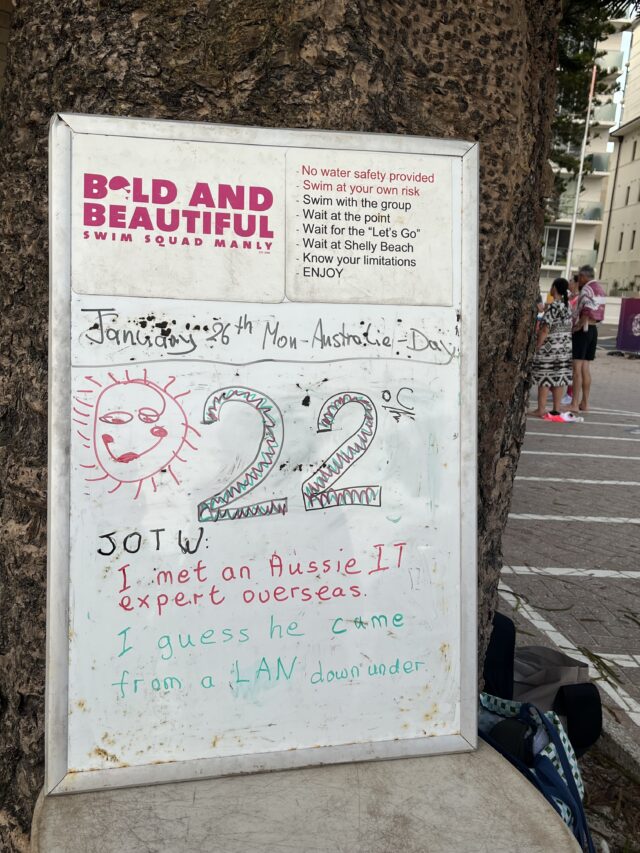 BOLD AND
BEAUTIFUL
SWIM SQUAD MANLY
- No water safety provided
- Swim at your own risk
- Swim with the group
- Wait at the point
- Wait for the "Let's Go"
- Wait at Shelly Beach
- Know your limitations
- ENJOY
January 26th Mon-Australia-Day
22°C
JOTW:
I met an Aussie IT
expert overseas.
I guess he came
from a LAN down under